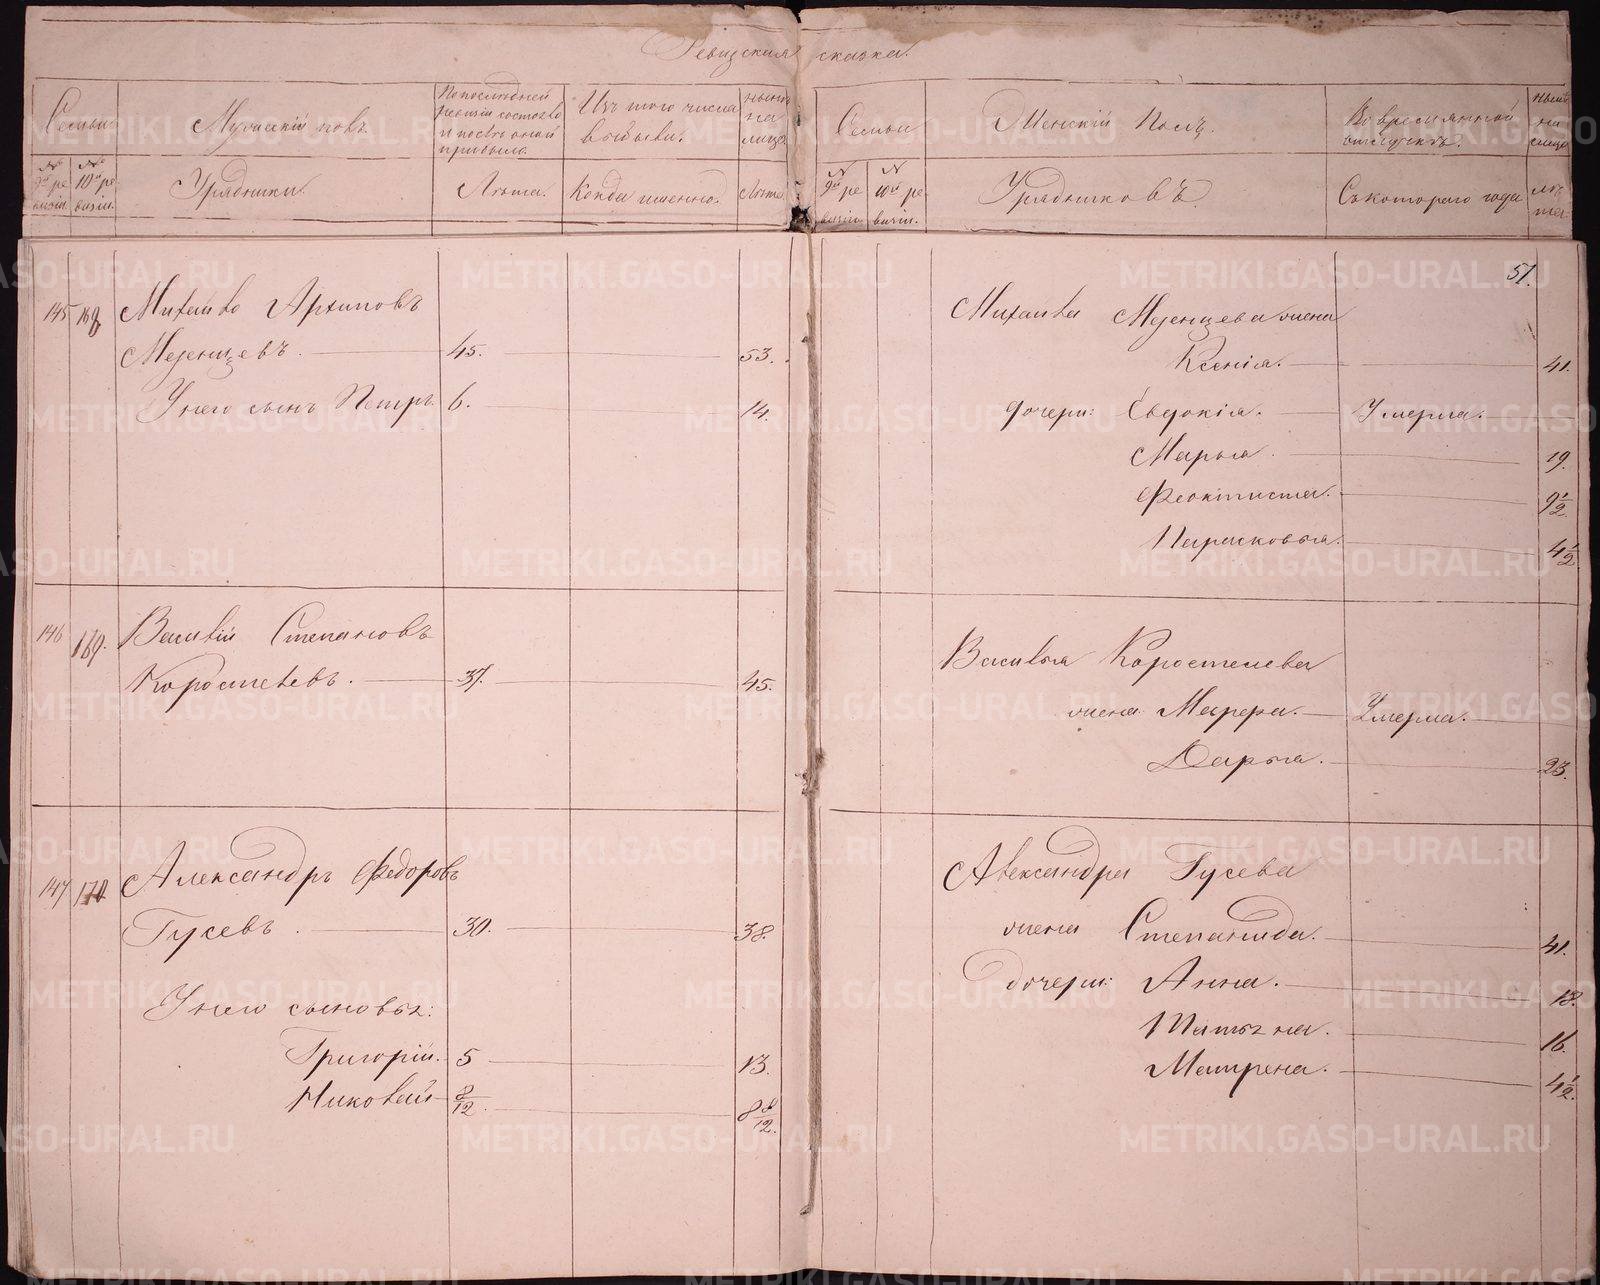 Ревизская сказка.
Семьи
Мужескій полъ.
По последней
ревизіи состояло
и после оной
прибыло.
Изъ того числа
выбыли.
ныне
на
лицо
№
9й ре
визіи.
№
10й ре
визіи.
Урядники.
Лета.
Когда именно.
Лета
Семьи
Женскій Полъ.
Во временной
отлучкѣ.
ныне
на
лицо
№
9й ре
визіи
№
10й ре
визіи.
Урядниковъ
Съ котораго года
ле
та
145 168 Михайло Архиповъ
Мезенцевъ. 45. 53.
У него сынъ Петръ 6. 14.
146 169. Василій Степановъ
Коростелевъ. 37. 45.
147 170 Александръ Федоровъ
Гусевъ. 30. 38.
У него сыновья:
Григорій. 5 13.
Николай 8/12. 8 8/12.
51.
Михаила Мезенцева жена
Ксенія. 41.
дочери: Евдокія. Умерла.
Марья. 19.
Феоктиста. 9 1/2.
Парасковья. 4 1/2
Василья Коростелева
жена Марфа. Умерла.
Дарья. 23.
Александра Гусева
жена Степанида. 41.
дочери: Анна. 18.
Татьяна. 16.
Матрена. 4 1/2.
METRIKI.GASO-URAL.RU